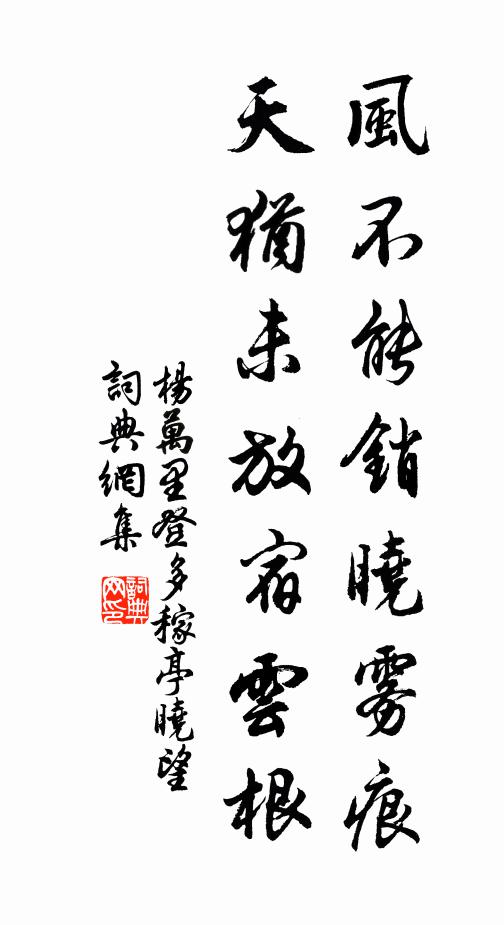 風不能銷曉雾痕
天猶未放宿雲根
楊萬里登多稼亭曉望
詞典網集
詞典網印